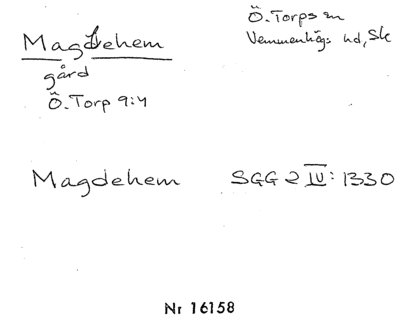 Magdehem
gård
Ö. Torp 9:4
Ö. Torps sn
Vemmenhögs hd, Sk
Magdehem SGG 2 IV: 1330
Nr 16158